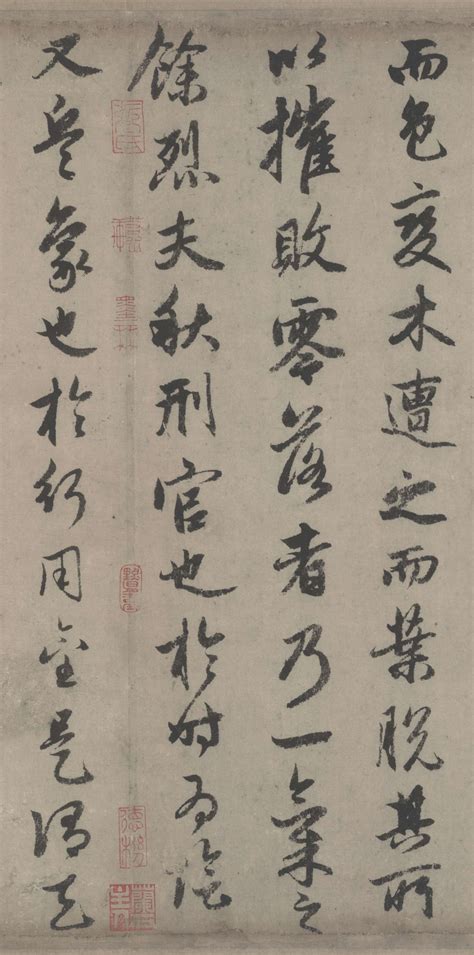 而色變木遭之而葉脫其所
以摧敗零落者乃一氣之
餘烈夫秋刑官也於時為陰
又兵象也於行用金是謂天